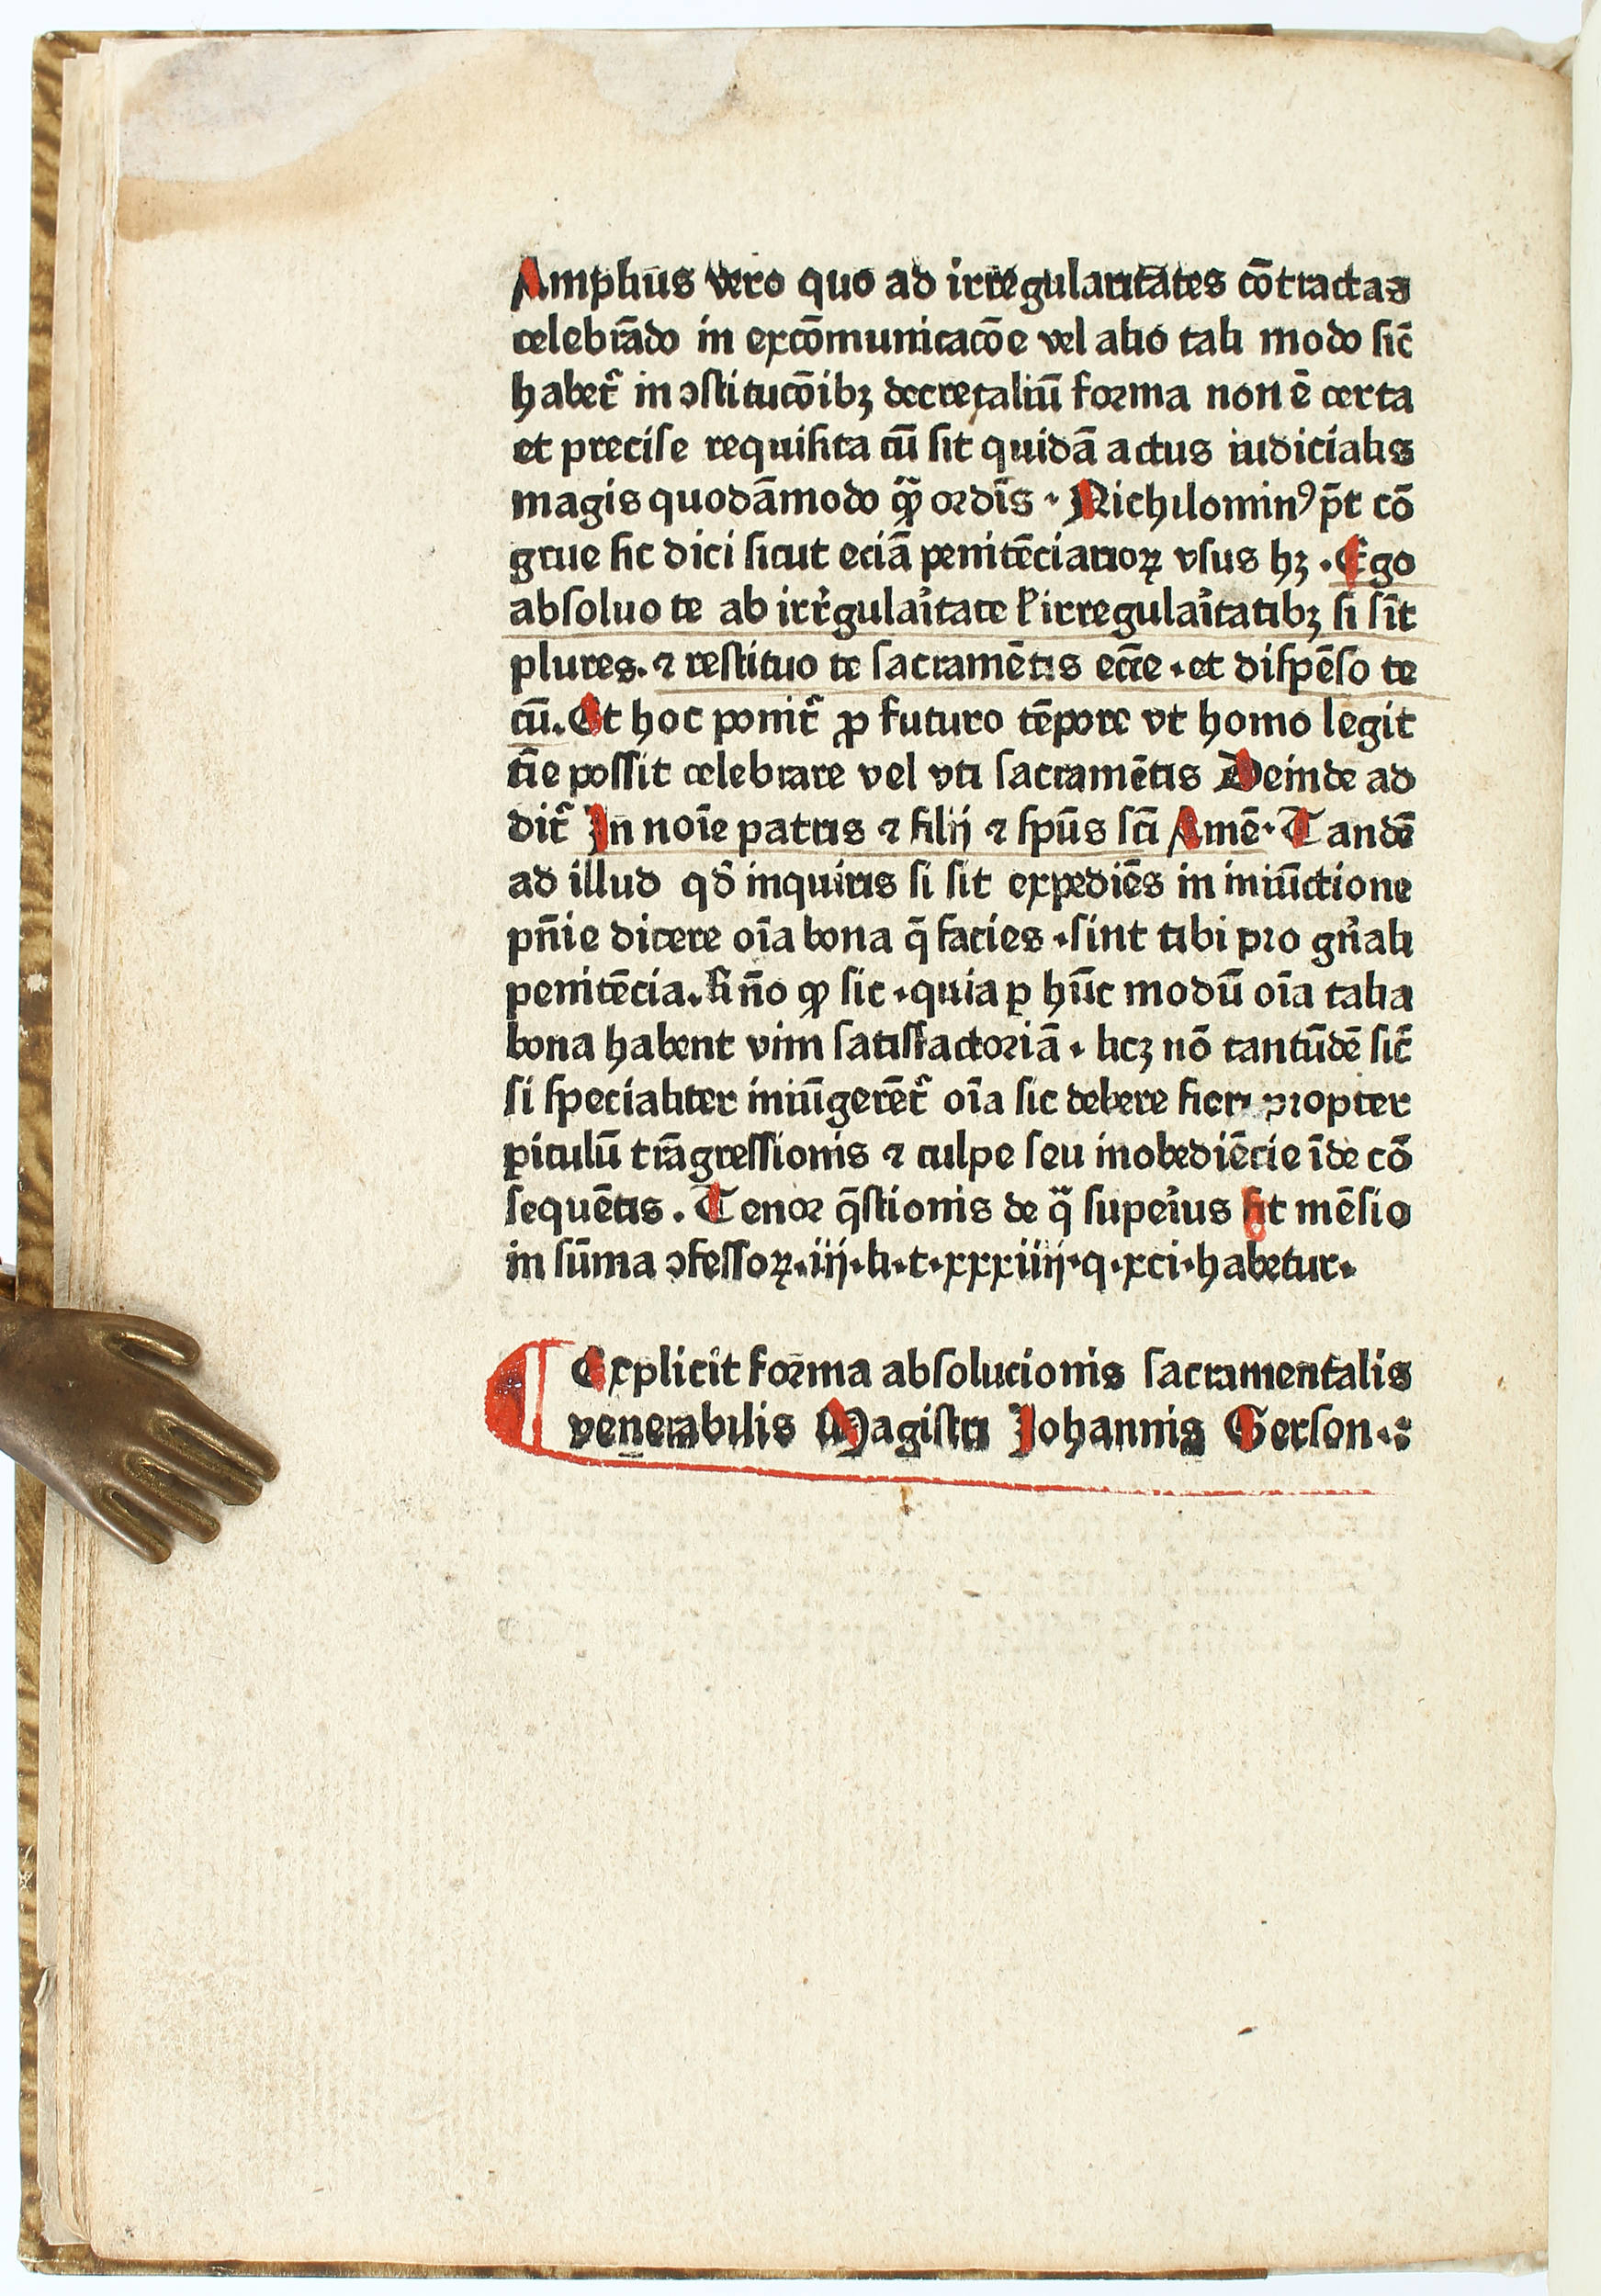 Ampliꝰ vero quo ad irregularitates cōtractas
celebrādo in excōmunicacōe vel alio tali modo sic̄
habet᷑ in ꝯstitucōibꝫ decretaliū forma non ē certa
et precise requisita cū sit quidā actus iudicialis
magis quodāmodo qꝫ ordīs · Nichilominꝰ p̄t cō
grue sic dici sicut eciā penitēciarioꝝ vsus hꝫ . Ego
absoluo te ab irrͥgulaͥitate ł irregulaͥitatibꝫ si sīt
plures. ⁊ restituo te sacramētis ecc̄e . et dispēso te
cū. Et hoc ponit᷑ ꝓ futuro tēpore vt homo legit
tīe possit celebrare vel vti sacramētis Deinde ad
dit᷑ In noīe patris ⁊ filij ⁊ spūs sc̄i Amē · Tandē
ad illud qđ inquiris si sit expediēs in iniūctione
pn̄ie dicere oīa bona q̄ facies . sint tibi pro gn̄ali
penitēcia. sīno ꝙ sic . quia ꝑ hūc modū oīa talia
bona habent vim satisfactoriā . licꝫ nō tantūdē sic̄
si specialiter iniūgerēt᷑ oīa sic debere fieri propter
ꝑiculū trāgressionis ⁊ culpe seu inobediēcie īde cō
sequētis . Tenor q̄stionis de qͣ supeͥius fit mēsio
in sūma ꝯfessoꝝ . iij . li . t . xxxiiij . q . xci . habetur .
Explicit forma absolucionis sacramentalis
venerabilis Magistri Johannis Gerson . :